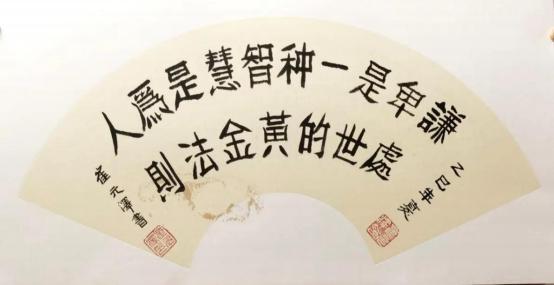 謙卑是一种智慧是爲人
處世的黃金法則
乙巳年夏
崔元澤書